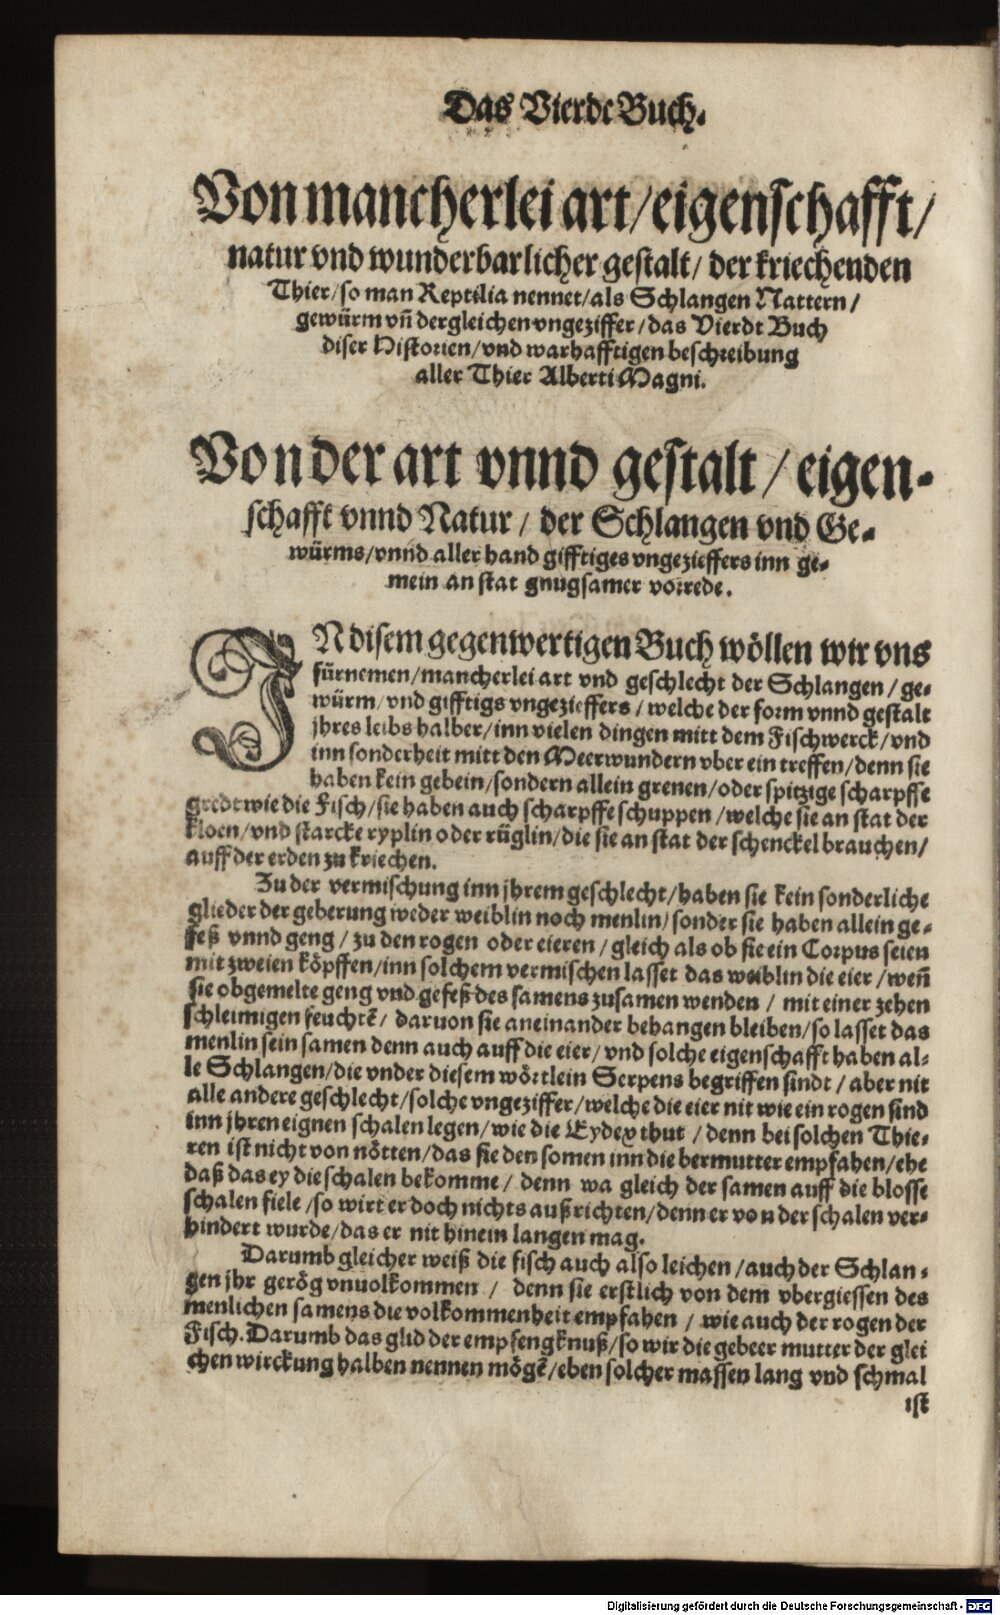 Das Vierde Buch.
Von mancherlei art/eigenschafft/
natur vnd wunderbarlicher gestalt/ der kriechenden
Thier/so man Reptilia nennet/als Schlangen Nattern/
gewürm vñ dergleichen vngeziffer/das Vierdt Buch
diser Historien/vnd warhafftigen beschreibung
aller Thier Alberti Magni.
Von der art vnnd gestalt / eigen-
schafft vnnd Natur / der Schlangen vnd Ge-
würms/vnnd aller hand gifftiges vngezieffers inn ge-
mein an stat gnugsamer vorrede.
IN disem gegenwertigen Buch wöllen wir vns
fürnemen/mancherlei art vnd geschlecht der Schlangen/ge-
würm/vnd gifftigs vngezieffers/welche der form vnnd gestalt
jhres leibs halber/inn vielen dingen mitt dem Fischwerck/vnd
inn sonderheit mitt den Meerwundern vber ein treffen/denn sie
haben kein gebein/sondern allein grenen/oder spitzige scharpffe
gredt wie die Fisch/sie haben auch scharpffe schuppen/welche sie an stat der
kloen/vnd starcke ryplin oder rüglin/die sie an stat der schenckel brauchen/
auff der erden zu kriechen.
Zu der vermischung inn jhrem geschlecht/haben sie kein sonderliche
glieder der geberung weder weiblin noch menlin/sonder sie haben allein ge-
feß vnnd geng/zu den rogen oder eieren/gleich als ob sie ein Corpus seien
mit zweien köpffen/inn solchem vermischen lasset das weiblin die eier/weñ
sie obgemelte geng vnd gefeß des samens zusamen wenden / mit einer zehen
schleimigen feuchtẽ/ daruon sie aneinander behangen bleiben/so lasset das
menlin sein samen denn auch auff die eier/vnd solche eigenschafft haben al-
le Schlangen/die vnder diesem wörtlein Serpens begriffen sindt/aber nit
alle andere geschlecht/solche vngeziffer/welche die eier nit wie ein rogen sind
inn jhren eignen schalen legen/wie die Eydex thut /denn bei solchen Thie-
ren ist nicht von nötten/das sie den somen inn die bermutter empfahen/ehe
daß das ey die schalen bekomme/ denn wa gleich der samen auff die blosse
schalen fiele/so wirt er doch nichts außrichten/denn er von der schalen ver-
hindert wurde/das er nit hinein langen mag.
Darumb gleicher weiß die fisch auch also leichen/auch der Schlan-
gen jhr gerög vnuolkommen / denn sie erstlich von dem vbergiessen des
menlichen samens die volkommenheit empfahen / wie auch der rogen der
Fisch. Darumb das glid der empfengknuß/so wir die gebeer mutter der glei
chen wirckung halben nennen mögẽ/eben solcher massen lang vnd schmal
ist
Digitalisierung gefördert durch die Deutsche Forschungsgemeinschaft - DFG